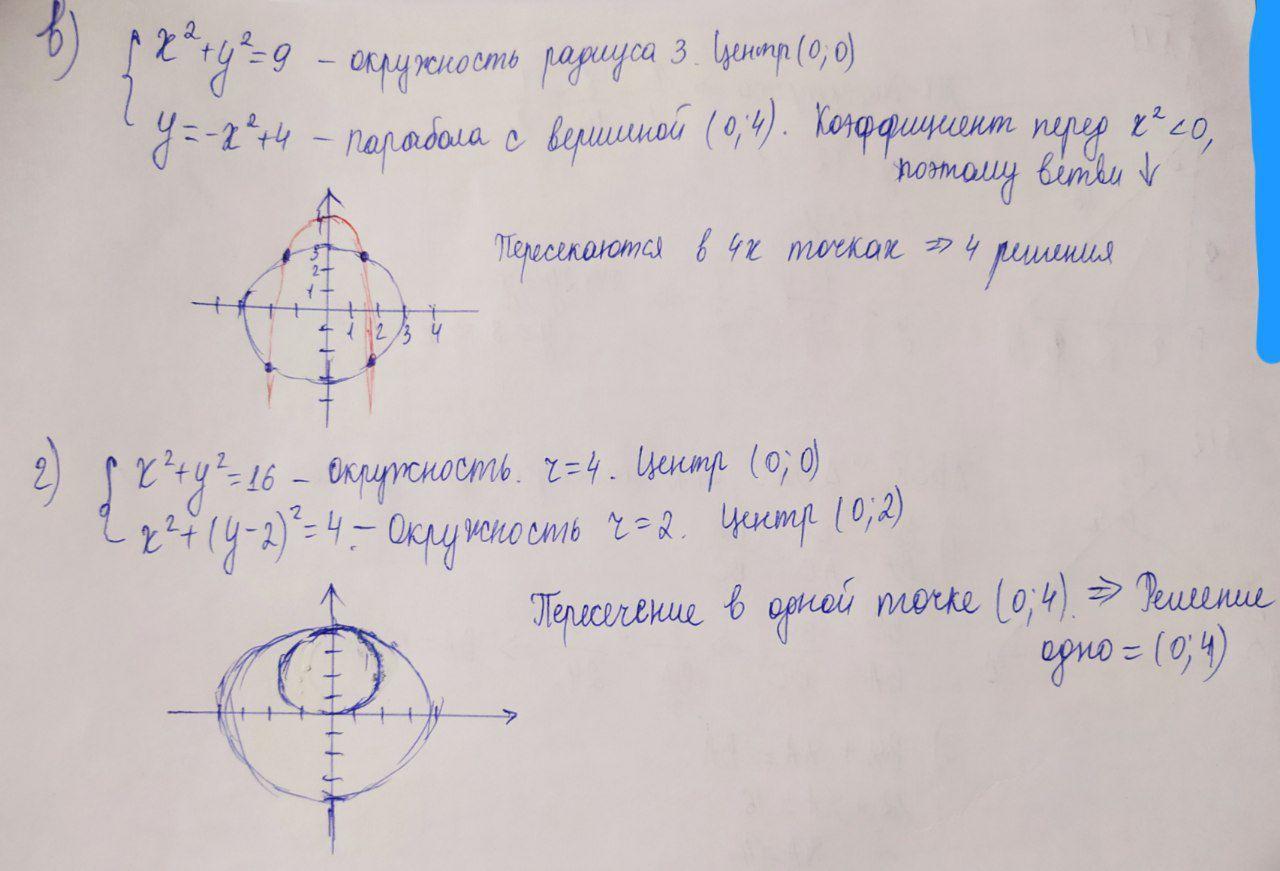 в) { x²+y²=9 – окружность радиуса 3. Центр (0;0)
y=-x²+4 – парабола с вершиной (0;4). Коэффициент перед x²<0,
поэтому ветви ↓
Пересекаются в 4х точках ⇒ 4 решения
3
2
1
1 2 3 4
г) { x²+y²=16 – окружность. r=4. Центр (0;0)
x²+(y-2)²=4 – Окружность r=2. Центр (0;2)
Пересечение в одной точке (0;4). ⇒ Решение
одно = (0;4)